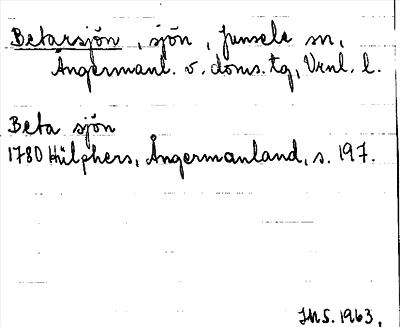 Betarsjön, sjön, Junsele sn,
Ångermanl. v. doms. tg, Vrnl. l.
Beta sjön
1780 Hülphers, Ångermanland, s. 197.
JMS. 1963.